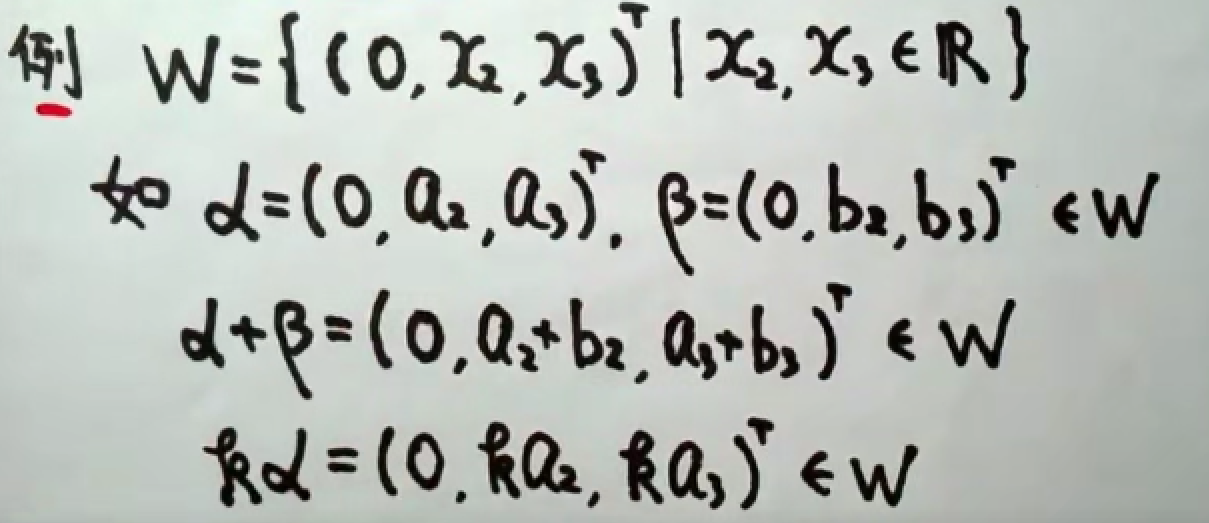 例 W={(0,x₂,x₃)ᵀ|x₂,x₃∈ℝ}
如 α=(0,a₂,a₃)ᵀ, β=(0,b₂,b₃)ᵀ ∈W
α+β=(0,a₂+b₂,a₃+b₃)ᵀ ∈ W
kα=(0,ka₂,ka₃)ᵀ ∈W